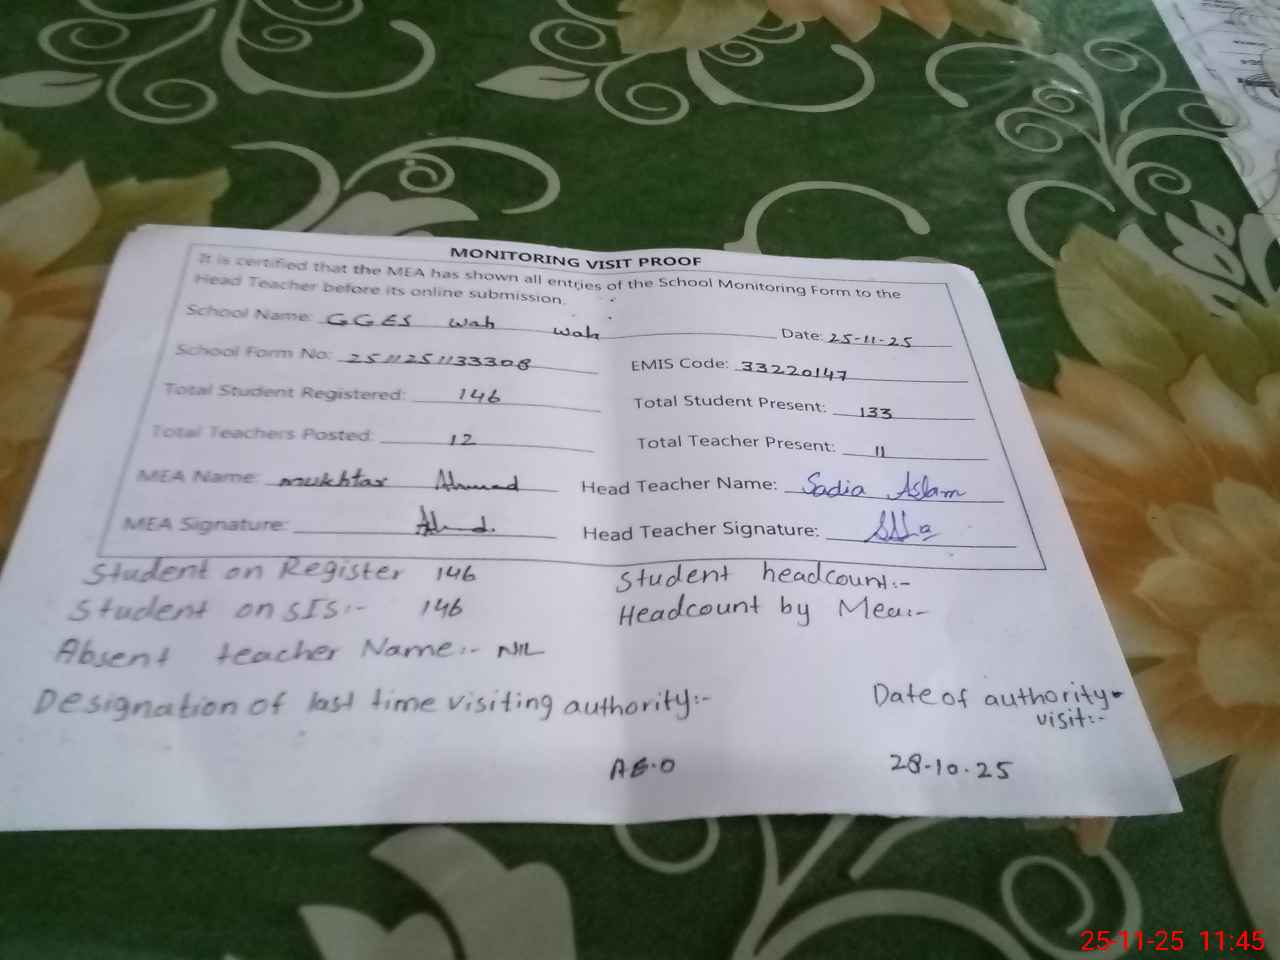 MONITORING VISIT PROOF
It is certified that the MEA has shown all entries of the School Monitoring Form to the
Head Teacher before its online submission.
School Name: GGES Wah Wah Date: 25-11-25
School Form No: 2511251133308 EMIS Code: 33220147
Total Student Registered: 146 Total Student Present: 133
Total Teachers Posted: 12 Total Teacher Present: 11
MEA Name: mukhtar Ahmad Head Teacher Name: Sadia Aslam
MEA Signature: Head Teacher Signature:
Student on Register 146 Student headcount:-
Student on SIS:- 146 Headcount by Mea:-
Absent teacher Name:- NIL
Designation of last time visiting authority:- Date of authority visit:-
AE.O 28.10.25
25-11-25 11:45